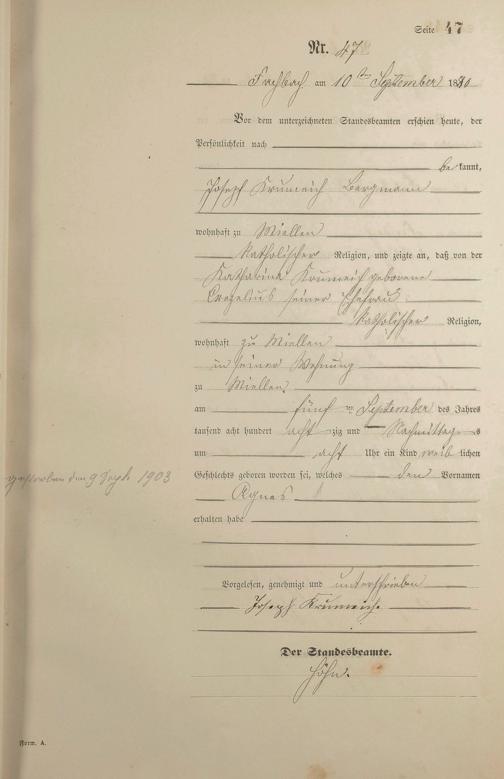 Seite 47
Nr. 47
Frechbach am 10ten September 1880
Vor dem unterzeichneten Standesbeamten erschien heute, der
Persönlichkeit nach
be kannt,
Joseph Krumeich Bergmann
wohnhaft zu Miellen
katholischer Religion, und zeigte an, daß von der
Katharina Krumeich geborene
seiner Ehefrau
katholischer Religion,
wohnhaft zu Miellen
in seiner Wohnung
zu Miellen
am fünf ten September des Jahres
tausend acht hundert acht zig und Nachmittag s
um acht Uhr ein Kind weib lichen
gestorben den 9 Sept. 1903
Geschlechts geboren worden sei, welches den Vornamen
Agnes
erhalten habe
Vorgelesen, genehmigt und unterschrieben
Joseph Krumeich
Der Standesbeamte.
Höhn.
Form. A.